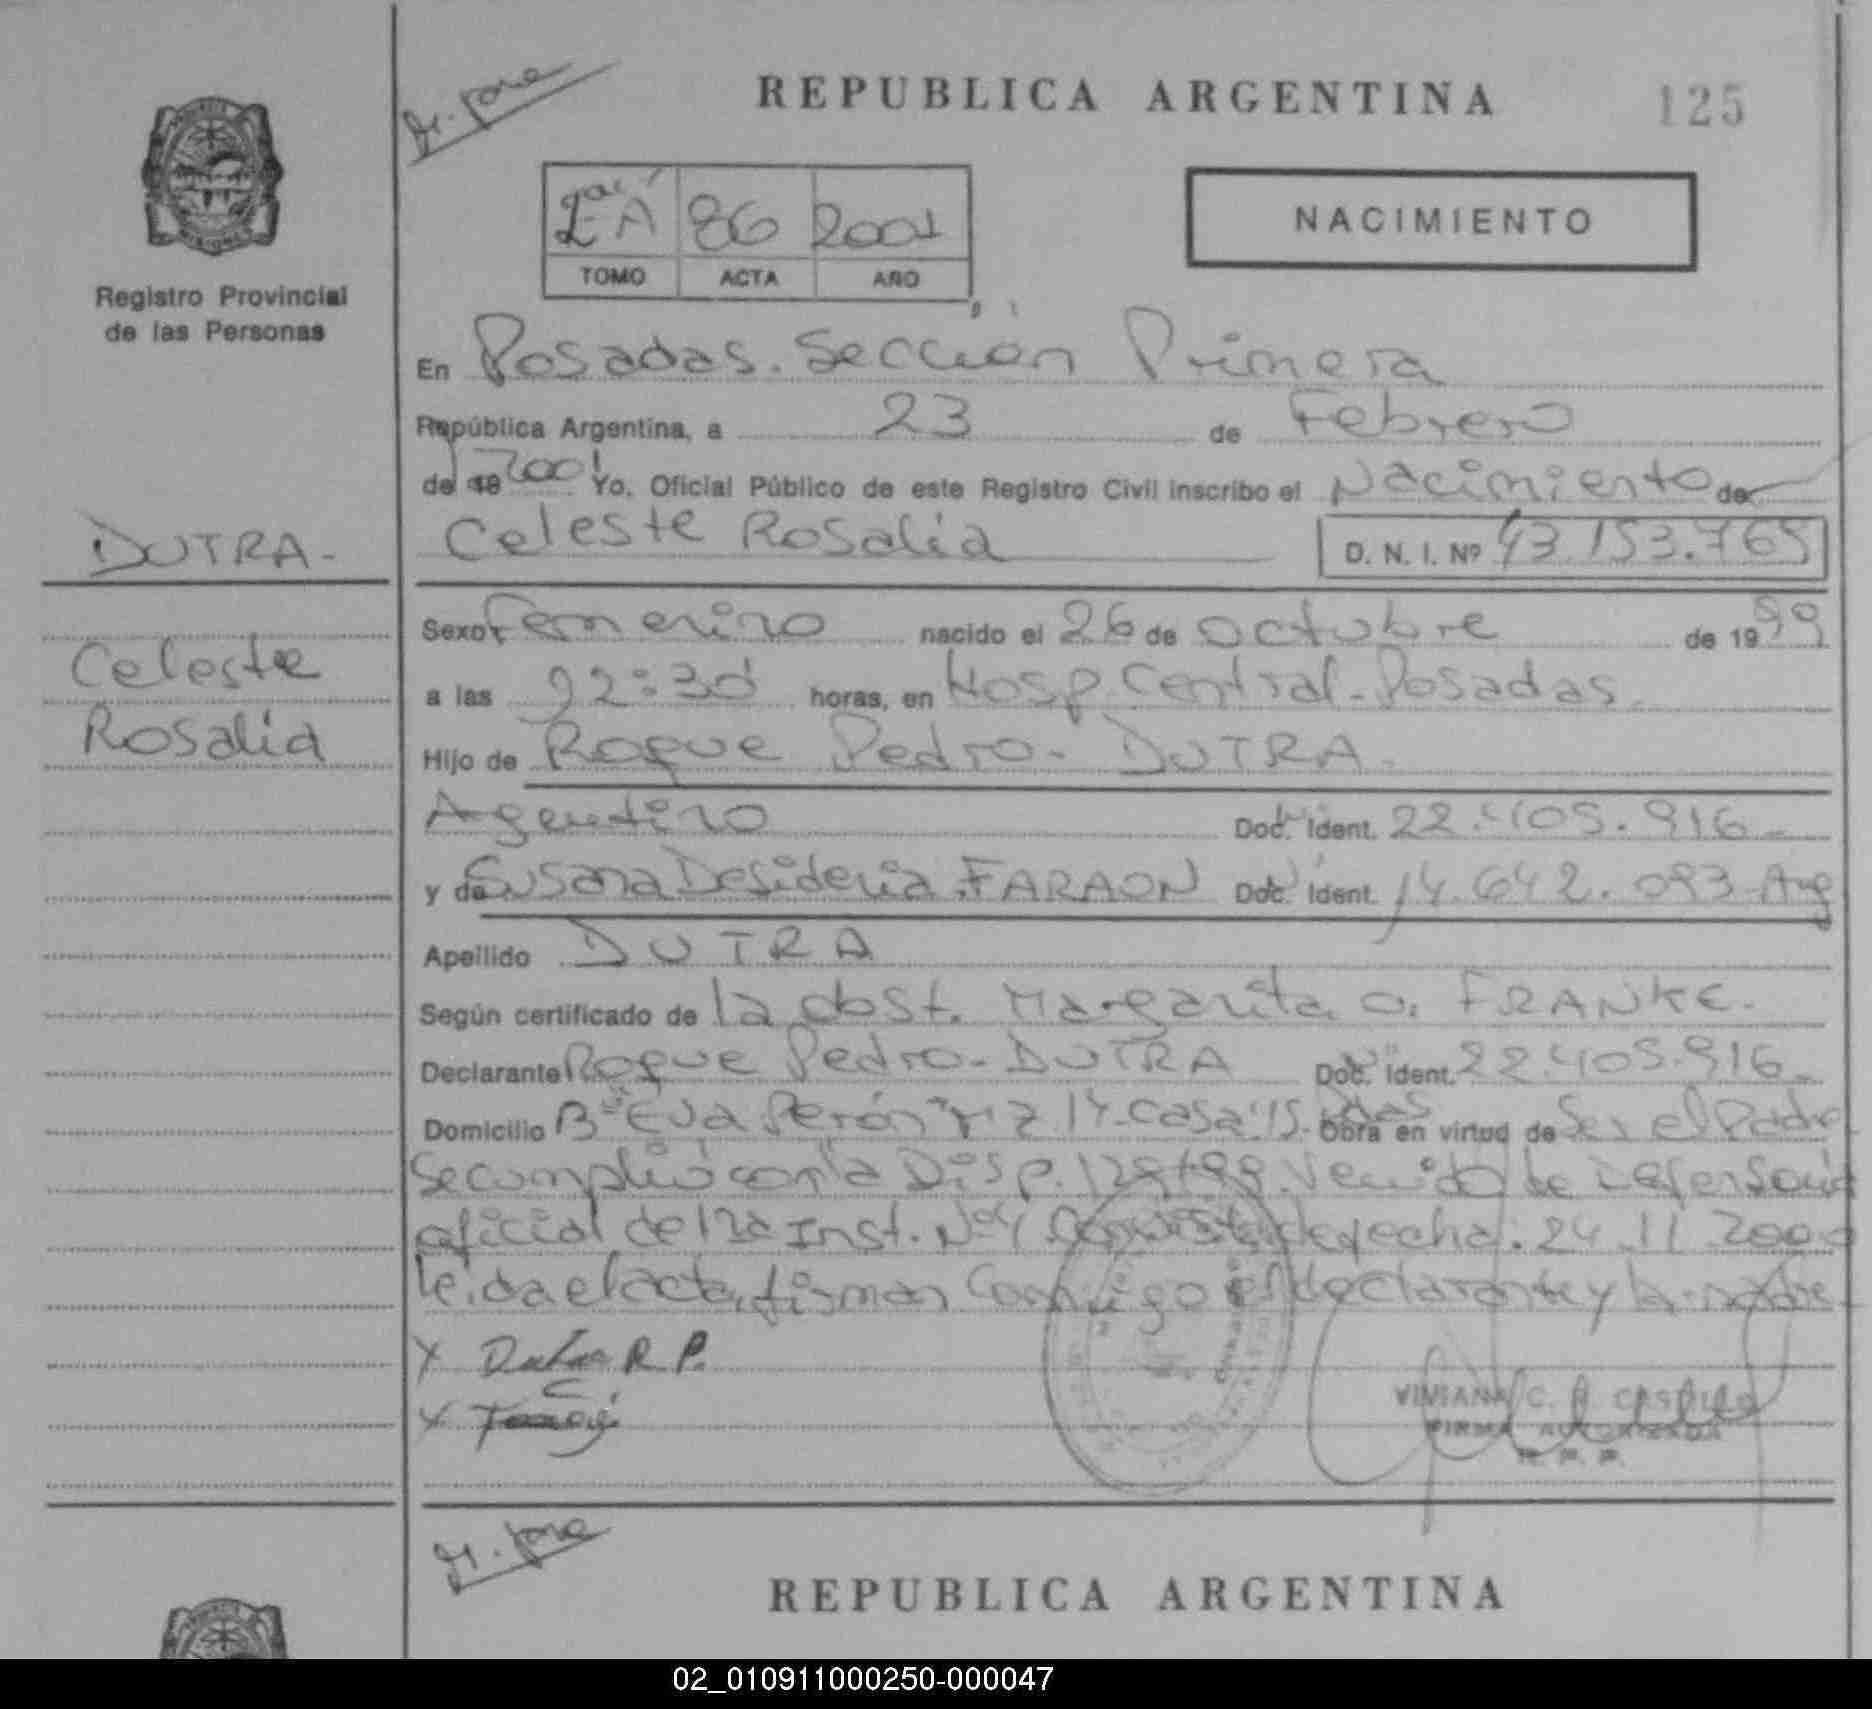 REPUBLICA ARGENTINA
125
2ª A 86 2001
TOMO ACTA AÑO
NACIMIENTO
Registro Provincial
de las Personas
En Posadas. Sección Primera
República Argentina, a 23 de Febrero
de 19 2001 Yo, Oficial Público de este Registro Civil inscribo el Nacimiento de
Celeste Rosalía
D. N. I. Nº 43.153.765
DUTRA-
Celeste
Rosalía
Sexo Femenino nacido el 26 de Octubre de 1999
a las 22:30 horas, en Hosp. Central-Posadas.
Hijo de Roque Pedro- DUTRA-
Argentino Doc. Ident. 22.405.916-
y de Susana Desideria FARAON Doc. Ident. 14.642.093 Arg
Apellido DUTRA
Según certificado de la obst. Margarita O. FRANKE.
Declarante Roque Pedro-DUTRA Doc. Ident. 22.405.916-
Domicilio Bº "Eva Perón" Mz 14-casa 15. Pdas Obra en virtud de ser el Padre
Se cumplió con la Disp. 129/99. Venido de Defensoría
oficial de 1ra Inst. Nº 4 de fecha: 24.11.2000
leída el acta, firman conmigo el declarante y la madre
X Dutra R. P.
X
VIVIANA C. CASTILLO
FIRMA AUTORIZADA
R. P. P.
REPUBLICA ARGENTINA
02_010911000250-000047